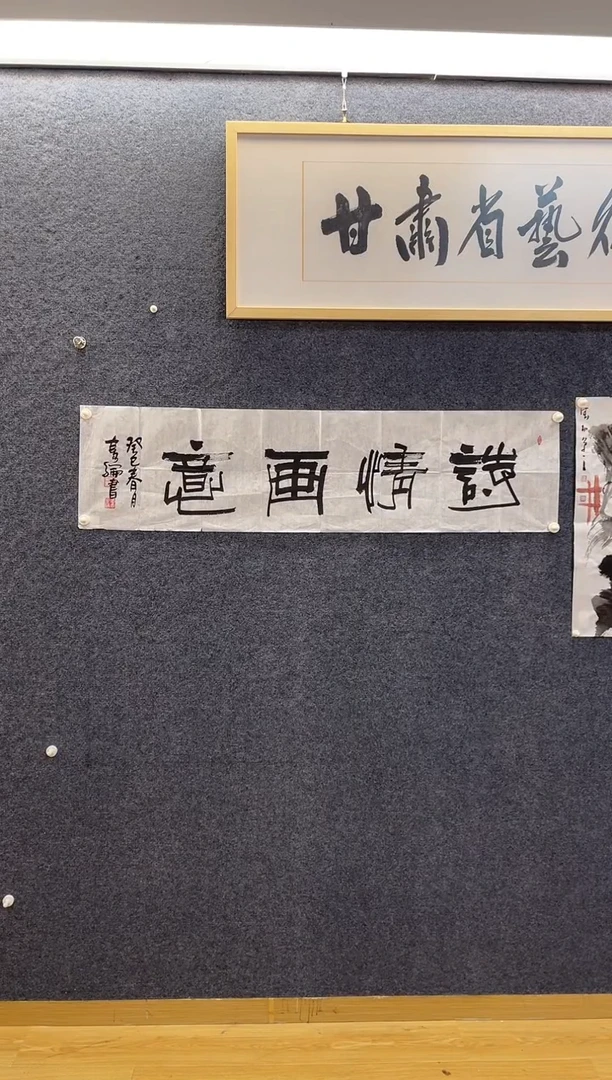 甘肅省藝
詩情画意
癸巳春月